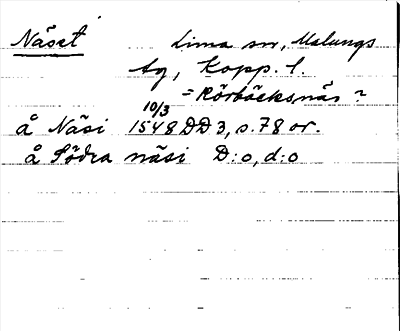 Näset Lima sn, Malungs
tg, Kopp. l.
= Rörbäcksnäs ?
10/3
å Näsi 1548 DD 3, s. 78 or.
å Södra näsi D:o, d:o